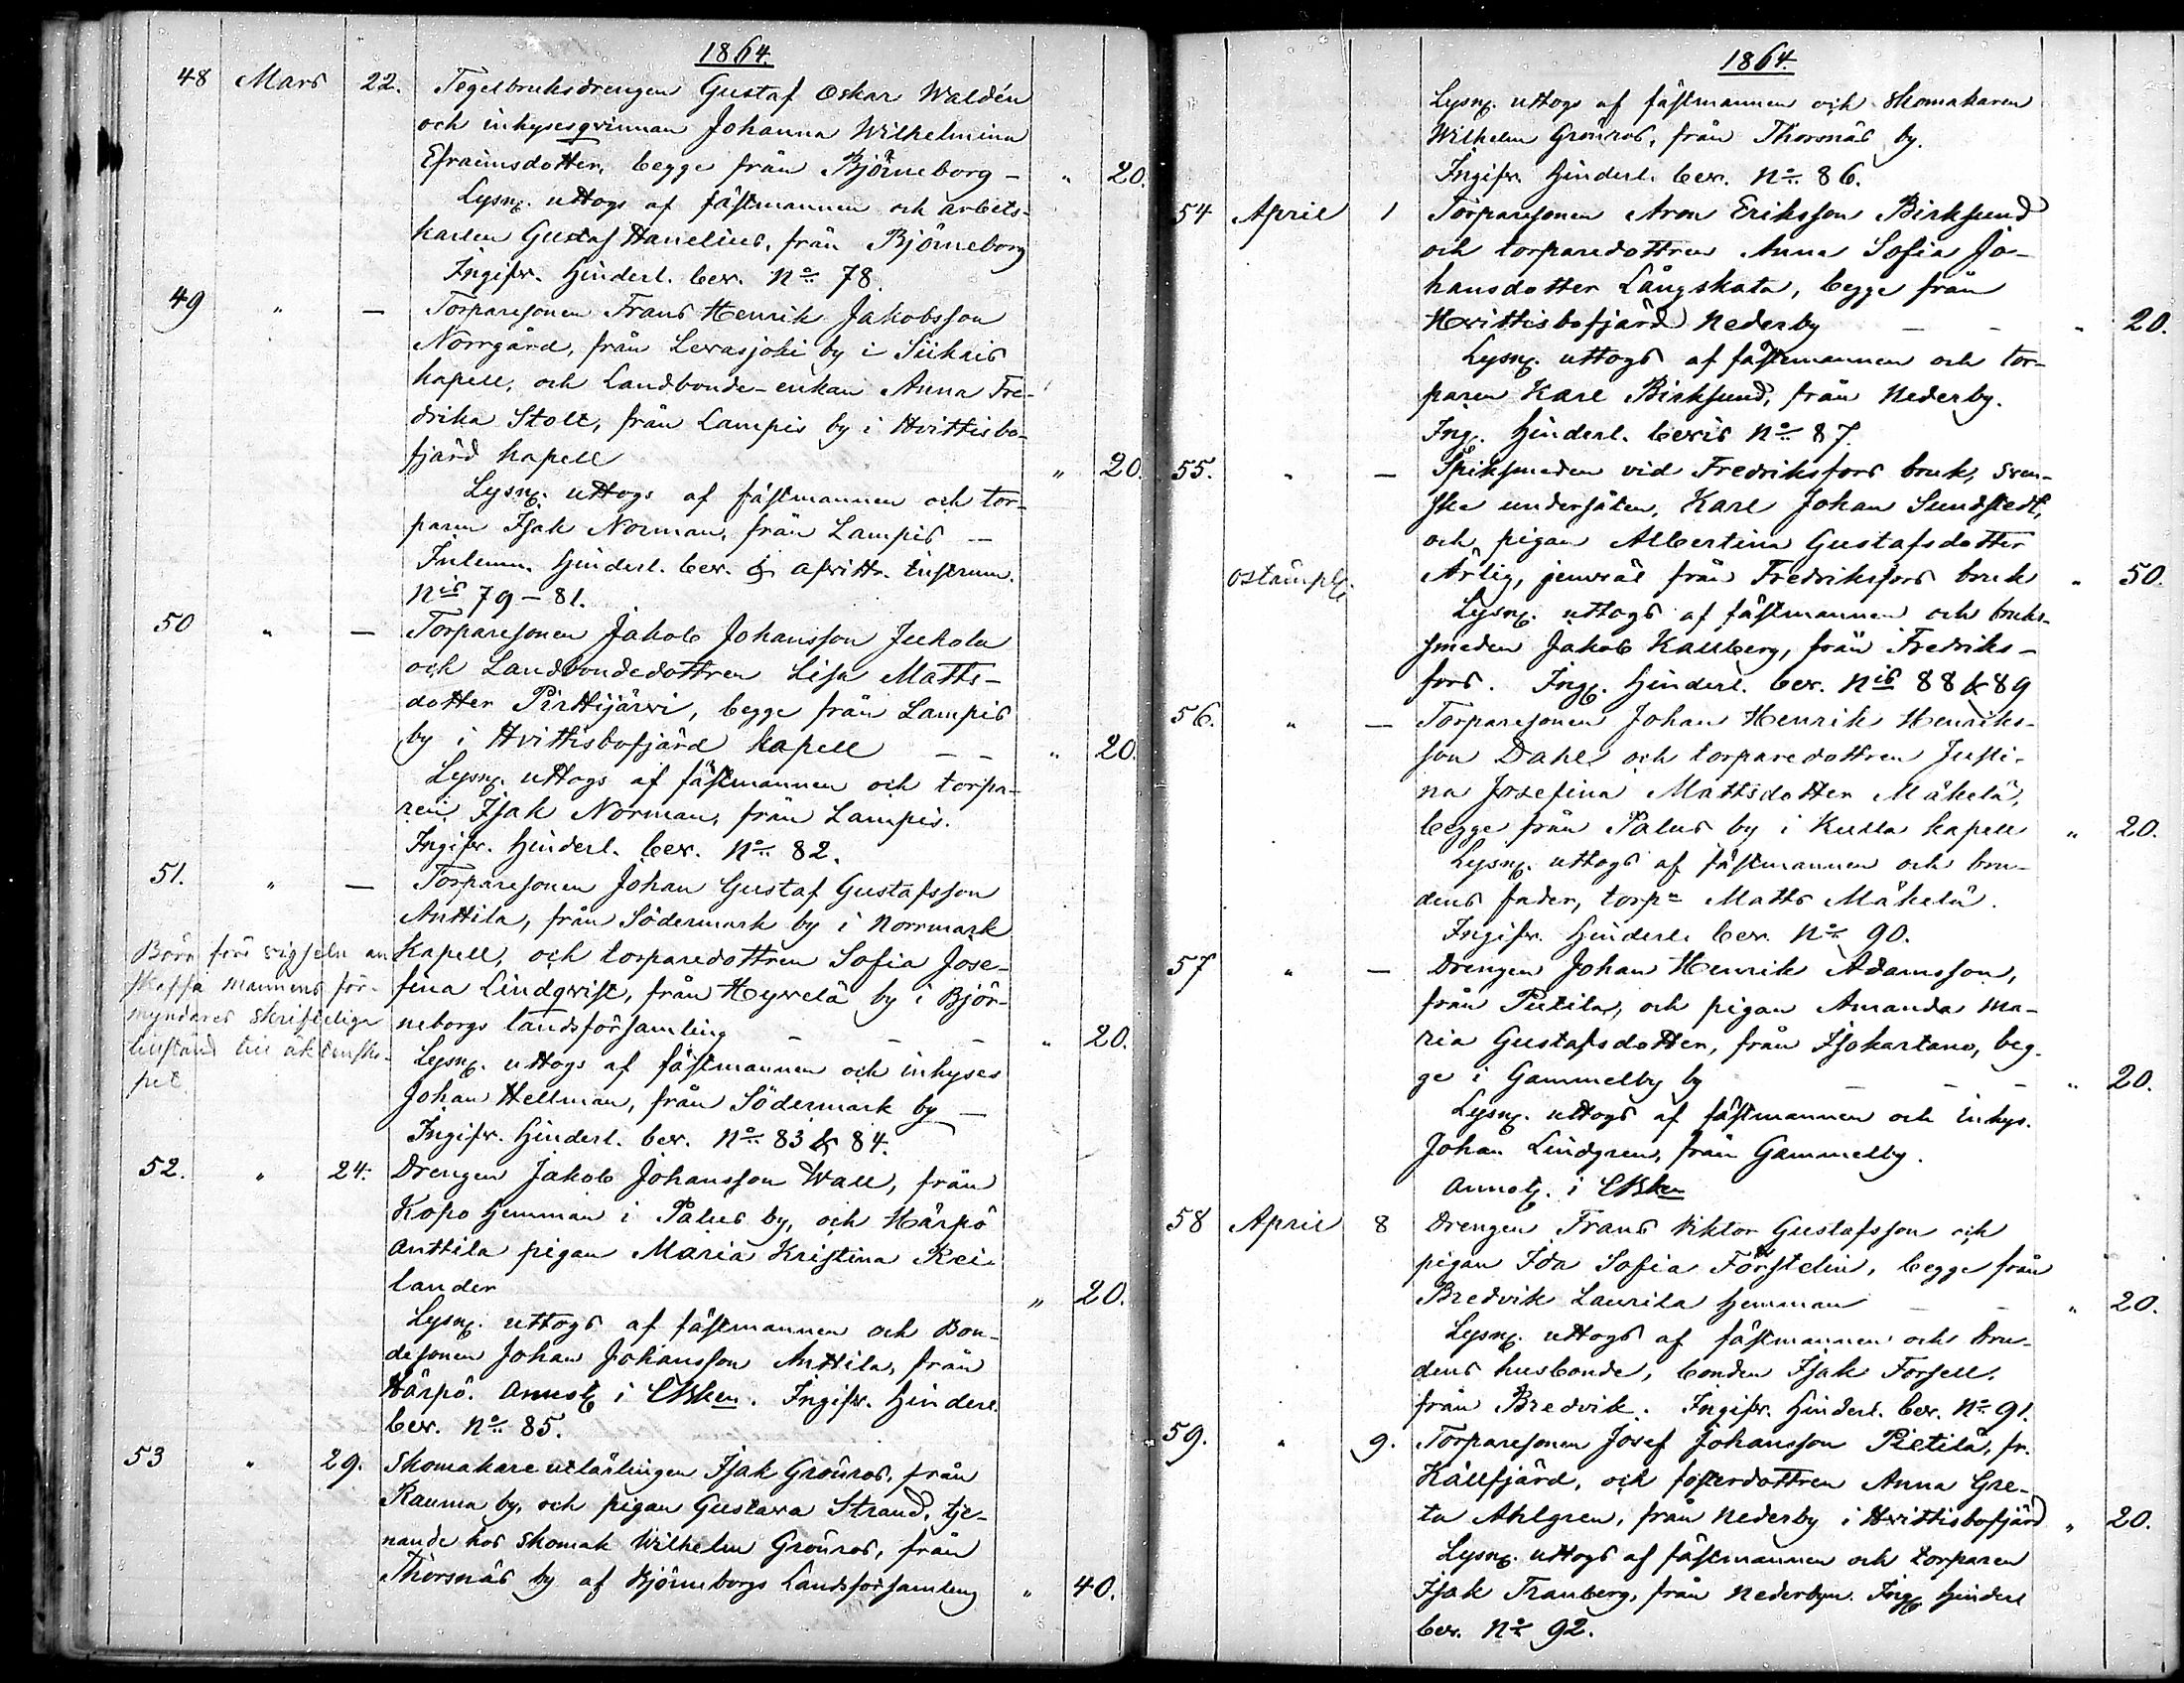 1864.
48 Mars 22. Tegelbruksdrengen Gustaf Oskar Waldén
och inhysesqvinnan Johanna Wilhelmina
Efraimsdotter, begge från Björneborg – " 20.
Lysng. uttogs af fästmannen och arbets-
karlen Gustaf Hanelius, från Björneborg
Ingifw. hinderl. bew. No. 78.
49 " — Torparesonen Frans Henrik Jakobsson
Norrgård, från Lewasjoki by i Siikais
kapell, och Landbonde-enkan Anna Fre-
drika Stolt, från Lampis by i Hvittisbo-
fjärd kapell " 20.
Lysng. uttogs af fästmannen och tor-
paren Isak Norman, från Lampis —
Inlemn. hinderl. bew. & afvittr. instrum.
Nis 79–81.
50 " — Torparesonen Jakob Johansson Juhola
och Landbondedottren Lisa Matts-
dotter Pirttijärwi, begge från Lampis
by i Hvittisbofjärd kapell — — " 20.
Lysng. uttogs af fästmannen och torpa-
ren Isak Norman, från Lampis.
Ingifw. hinderl. bew. No. 82.
51. " — Torparesonen Johan Gustaf Gustafsson
Anttila, från Södermark by i Norrmark
kapell, och torparedottren Sofia Jose-
fina Lindqvist, från Hyvelä by i Björ-
neborgs landsförsamling – – – " 20.
Lysng. uttogs af fästmannen och inhyses
Johan Hellman, från Södermark by —
Ingifw. hinderl. bew. No. 83 & 84.
Börn före vigseln an
skaffa mannens för-
myndares skriftliga
tillstånd till äktenska-
pet.
52. " 24. Drengen Jakob Johansson Wall, från
Kopo hemman i Palus by, och Härpö
Anttila pigan Maria Kristina Rei-
lander " 20.
Lysng. uttogs af fästmannen och Bon-
desonen Johan Johansson Anttila, från
Härpö. Annot. i CBken. Ingifw. hinderl.
bew. No. 85.
53 " 29. Skomakare utlärlingen Isak Grönros, från
Rauma by, och pigan Gustava Strand, tje-
nande hos skomak Wilhelm Grönros, från
Thorsnäs by af Björneborgs Landsförsamling " 40.
1864.
Lysng. uttogs af fästmannen och skomakaren
Wilhelm Grönros, från Thorsnäs by.
Ingifw. hinderl. bew. No. 86.
54 April 1 Torparesonen Aron Eriksson Birksund
och torparedottren Anna Sofia Jo-
hansdotter Långskata, begge från
Hvittisbofjärd Nederby – – " 20.
Lysng. uttogs af fästmannen och tor-
paren Karl Birksund, från Nederby.
Ing. hinderl. bevis No. 87.
55. " — Spiksmeden vid Fredriksfors bruk, sven-
ske undersåten, Karl Johan Sundstedt,
och pigan Albertina Gustafsdotter
ostämpl. Ärlig, jemväl från Fredriksfors bruk " 50.
Lysng. uttogs af fästmannen och bruks-
smeden Jakob Kallberg, från Fredriks-
fors. Ing. hinderl. bew. Nis 88 & 89
56. " — Torparesonen Johan Henrik Henriks-
son Dahl och torparedottren Justi-
na Josefina Mattsdotter Mäkelä,
begge från Palus by i Kulla kapell " 20.
Lysng. uttogs af fästmannen och bru-
dens fader, torp= Matts Mäkelä.
Ingifw. hinderl. bew. No. 90.
57 " — Drengen Johan Henrik Adamsson,
från Pietilä, och pigan Amanda Ma-
ria Gustafsdotter, från Isokartano, beg-
ge i Gammelby by – – – " 20.
Lysng. uttogs af fästmannen och inhys.
Johan Lindgren, från Gammelby.
Annot. i CBken
58 April 8 Drengen Frans Viktor Gustafsson och
pigan Ida Sofia Förstelin, begge från
Bredvik Laurila hemman – – " 20.
Lysng. uttogs af fästmannen och bru-
dens husbonde, bonden Isak Forsell,
från Bredvik. Ingifw. hinderl. bew. No. 91.
59. " 9. Torparesonen Josef Johansson Pietilä, fr.
Källfjärd, och fosterdottren Anna Gre-
ta Ahlgren, från Nederby i Hvittisbofjärd " 20.
Lysng. uttogs af fästmannen och torparen
Isak Tranberg, från Nederbyn. Ing. hinderl
bew. No. 92.